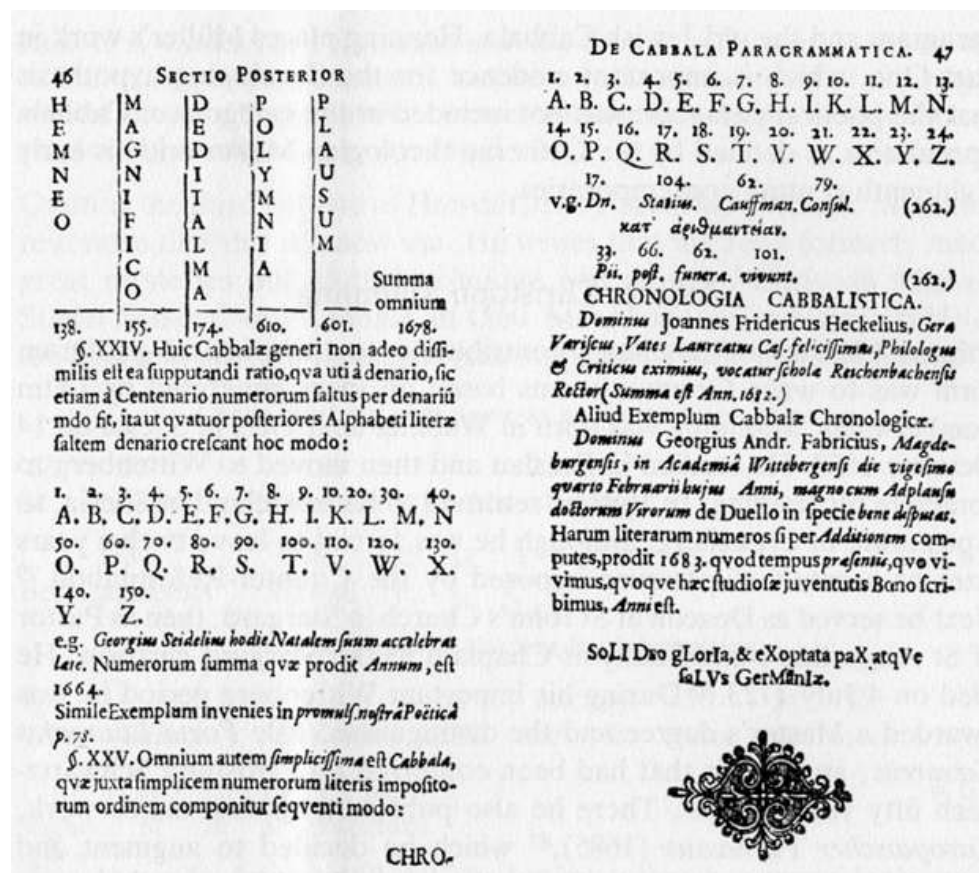 46 SECTIO POSTERIOR
HEMNEO
MAGNIFICO
DEDITALMA
POLYMNIA
PLAUSUM
Summa
omnium
138. 155. 174. 610. 601. 1678.
§. XXIV. Huic Cabbalæ generi non adeo diſſi-
milis eſt ea ſupputandi ratio, qva uti â denario, ſic
etiam â Centenario numerorum ſaltus per denariũ
mdo fit, ita ut qvatuor poſteriores Alphabeti literæ
ſaltem denario creſcant hoc modo:
1. 2. 3. 4. 5. 6. 7. 8. 9. 10. 20. 30. 40.
A. B. C. D. E. F. G. H. I. K. L. M. N
50. 60. 70. 80. 90. 100. 110. 120. 130.
O. P. Q. R. S. T. V. W. X.
140. 150.
Y. Z
e.g. Georgius Seidelius hodie Natalem ſuum accelebrat
Laic. Numerorum ſumma qvæ prodit Annum, eſt
1664.
Simile Exemplum invenies in promulſ. noſtrâ Poëticâ
p. 75.
§. XXV. Omnium autem ſimpliciſſima eſt Cabbala,
qvæ juxta ſimplicem numerorum literis impoſito-
rum ordinem componitur ſeqventi modo:
CHRO-
DE CABBALA PARAGRAMMATICA. 47
1. 2. 3. 4. 5. 6. 7. 8. 9. 10. 11. 12. 13.
A. B. C. D. E. F. G. H. I. K. L. M. N.
14. 15. 16. 17. 18. 19. 20. 21. 22. 23. 24.
O. P. Q. R. S. T. V. W. X. Y. Z.
17. 104. 62. 79.
v.g. Dn. Statius. Cauffman. Conſul. (262.)
κατ ἀειθμαντείαν.
33. 66. 62. 101.
Pii. poſt. funera. vivunt. (262.)
CHRONOLOGIA CABBALISTICA.
Dominus Joannes Fridericus Heckelius, Gera
Variſcus, Vates Laureatus Cæſ. feliciſſimus, Philologus
& Criticus eximius, vocatur ſchola Reichenbachenſis
Rector (Summa eſt Ann. 1682.)
Aliud Exemplum Cabbalæ Chronologicæ.
Dominus Georgius Andr. Fabricius, Magde-
burgenſis, in Academiâ Wittebergenſi die vigeſimo
quarto Februarii hujus Anni, magno cum Adplauſu
doctorum Virorum de Duello in ſpecie bene diſputat.
Harum literarum numeros ſi per Additionem com-
putes, prodit 1683. qvod tempus præſentis, qvo vi-
vimus, qvoqve hæc ſtudioſæ juventutis Bono ſcri-
bimus, Anni eſt.
SoLI Deo gLorIa, & eXoptata paX atqVe
ſaLVs GerManIæ.